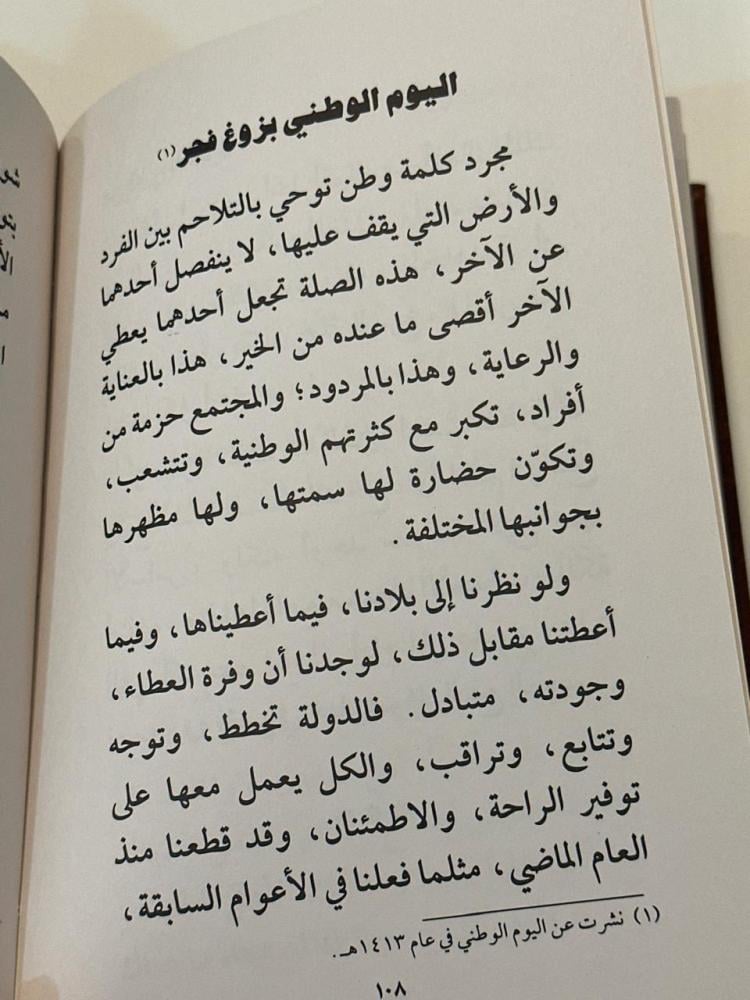 اليوم الوطني بزوغ فجر(١)
مجرد كلمة وطن توحي بالتلاحم بين الفرد
والأرض التي يقف عليها، لا ينفصل أحدهما
عن الآخر، هذه الصلة تجعل أحدهما يعطي
الآخر أقصى ما عنده من الخير، هذا بالعناية
والرعاية، وهذا بالمردود؛ والمجتمع حزمة من
أفراد، تكبر مع كثرتهم الوطنية، وتتشعب،
وتكوّن حضارة لها سمتها، ولها مظهرها
بجوانبها المختلفة.
ولو نظرنا إلى بلادنا، فيما أعطيناها، وفيما
أعطتنا مقابل ذلك، لوجدنا أن وفرة العطاء،
وجودته، متبادل. فالدولة تخطط، وتوجه
وتتابع، وتراقب، والكل يعمل معها على
توفير الراحة، والاطمئنان، وقد قطعنا منذ
العام الماضي، مثلما فعلنا في الأعوام السابقة،
(١) نشرت عن اليوم الوطني في عام ١٤١٣هـ.
١٠٨